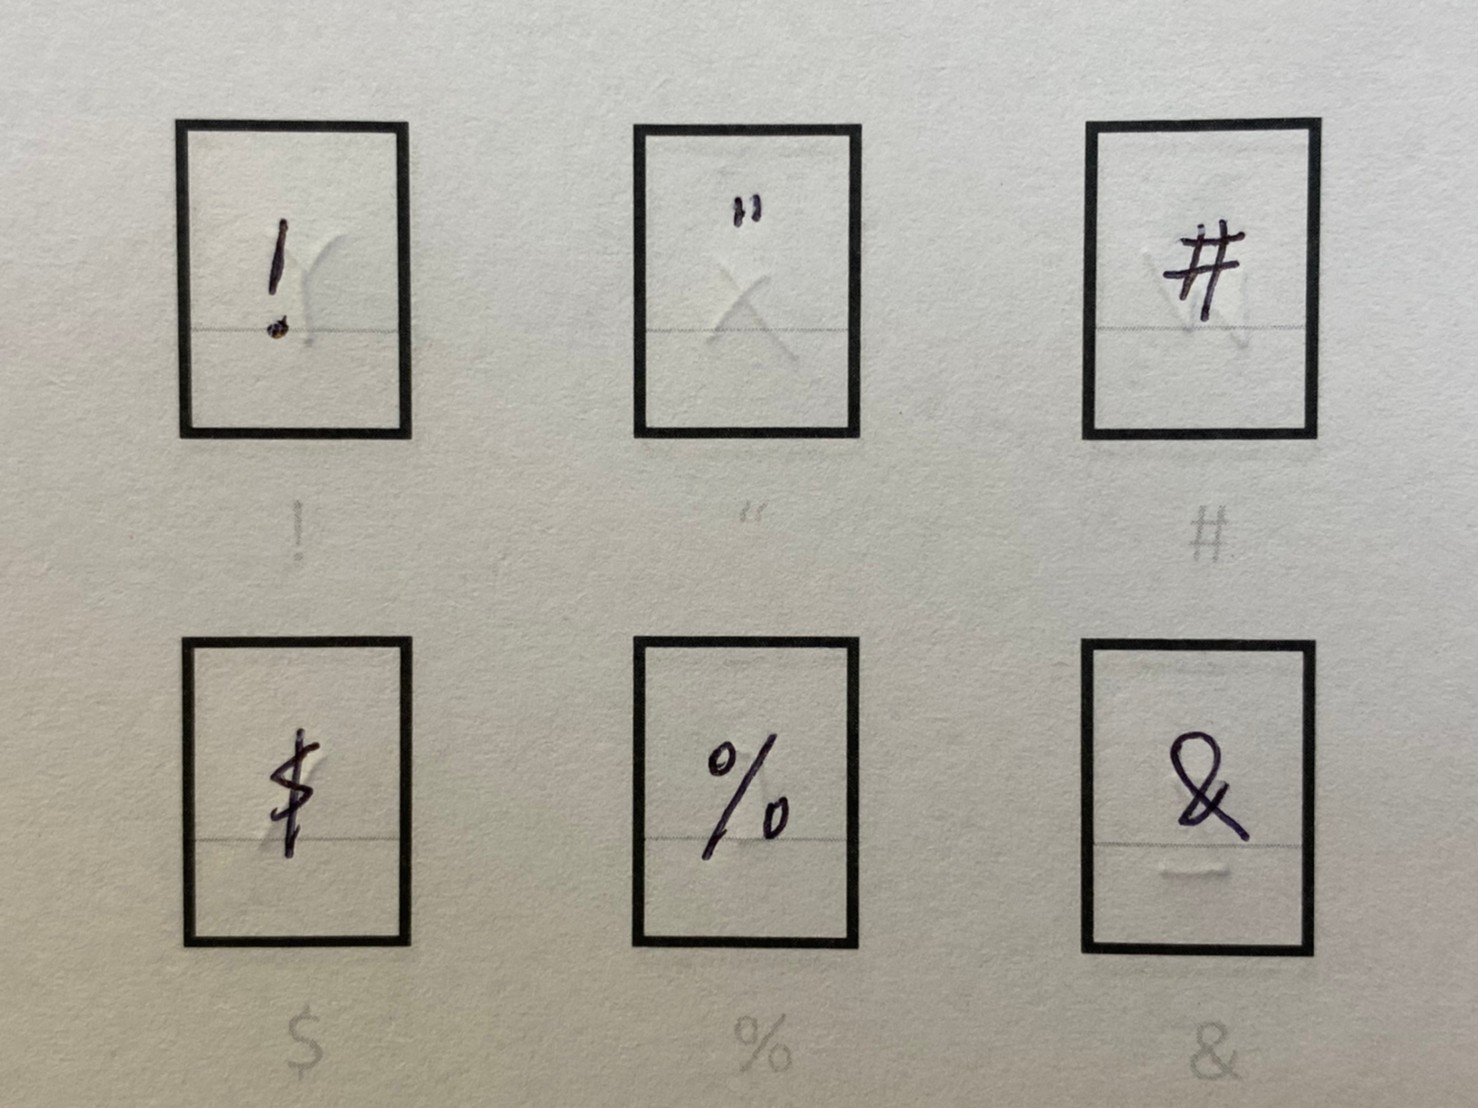 ! " #
! “ #
$ % &
$ % &